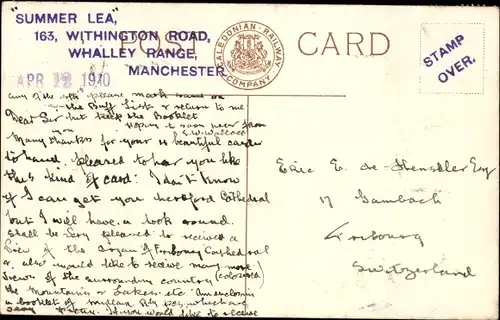 "SUMMER LEA,"
163, WITHINGTON ROAD,
WHALLEY RANGE,
MANCHESTER.
APR 12 1910
POST CARD
CALEDONIAN RAILWAY COMPANY
STAMP
OVER.
any of the please mark name on
the Buff List & return to me
Dear Sir but keep the Booklet
Hoping to soon hear from
you E.W. Wallace
Many thanks for your 4 beautiful cards
to hand. pleased to hear you like
this kind of card. I don't know
if I can get you Hereford Cathedral
but I will have a look round.
shall be very pleased to received a
View of the Organ of Fribourg Cathedral
or also would like to receive many more
views of the surrounding country (coloured)
the Mountains or Lakes etc. Am enclosing
a booklet of Ry pcs, which are
very pretty. If you would like to receive
Eric E. de Esq
17 Gambach
Fribourg
Switzerland